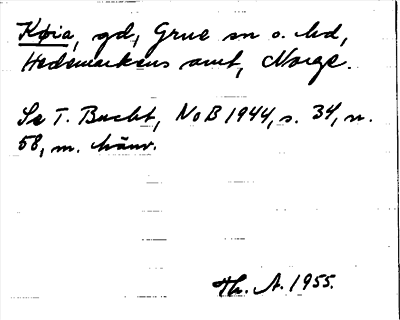 Køia, gd, Grue sn o. hd,
Hedemarkens amt, Norge.
Se T. Bucht, NoB 1944, s. 34, n.
58, m. hänv.
Th. A. 1955.